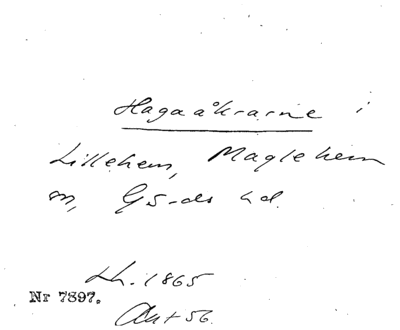 Hagaåkrarne i
Lillehem, Maglehem
sn, Gärds hd.
Lh. 1865
Nr 7897.
Akt 56.